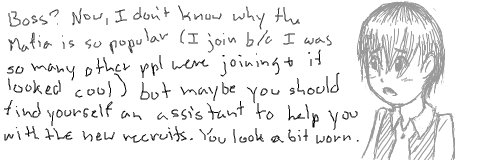 Boss? Now, I don't know why the
Mafia is so popular (I join b/c I was
so many other ppl were joining + it
looked cool) but maybe you should
find yourself an assistant to help you
with the new recruits. You look a bit worn.